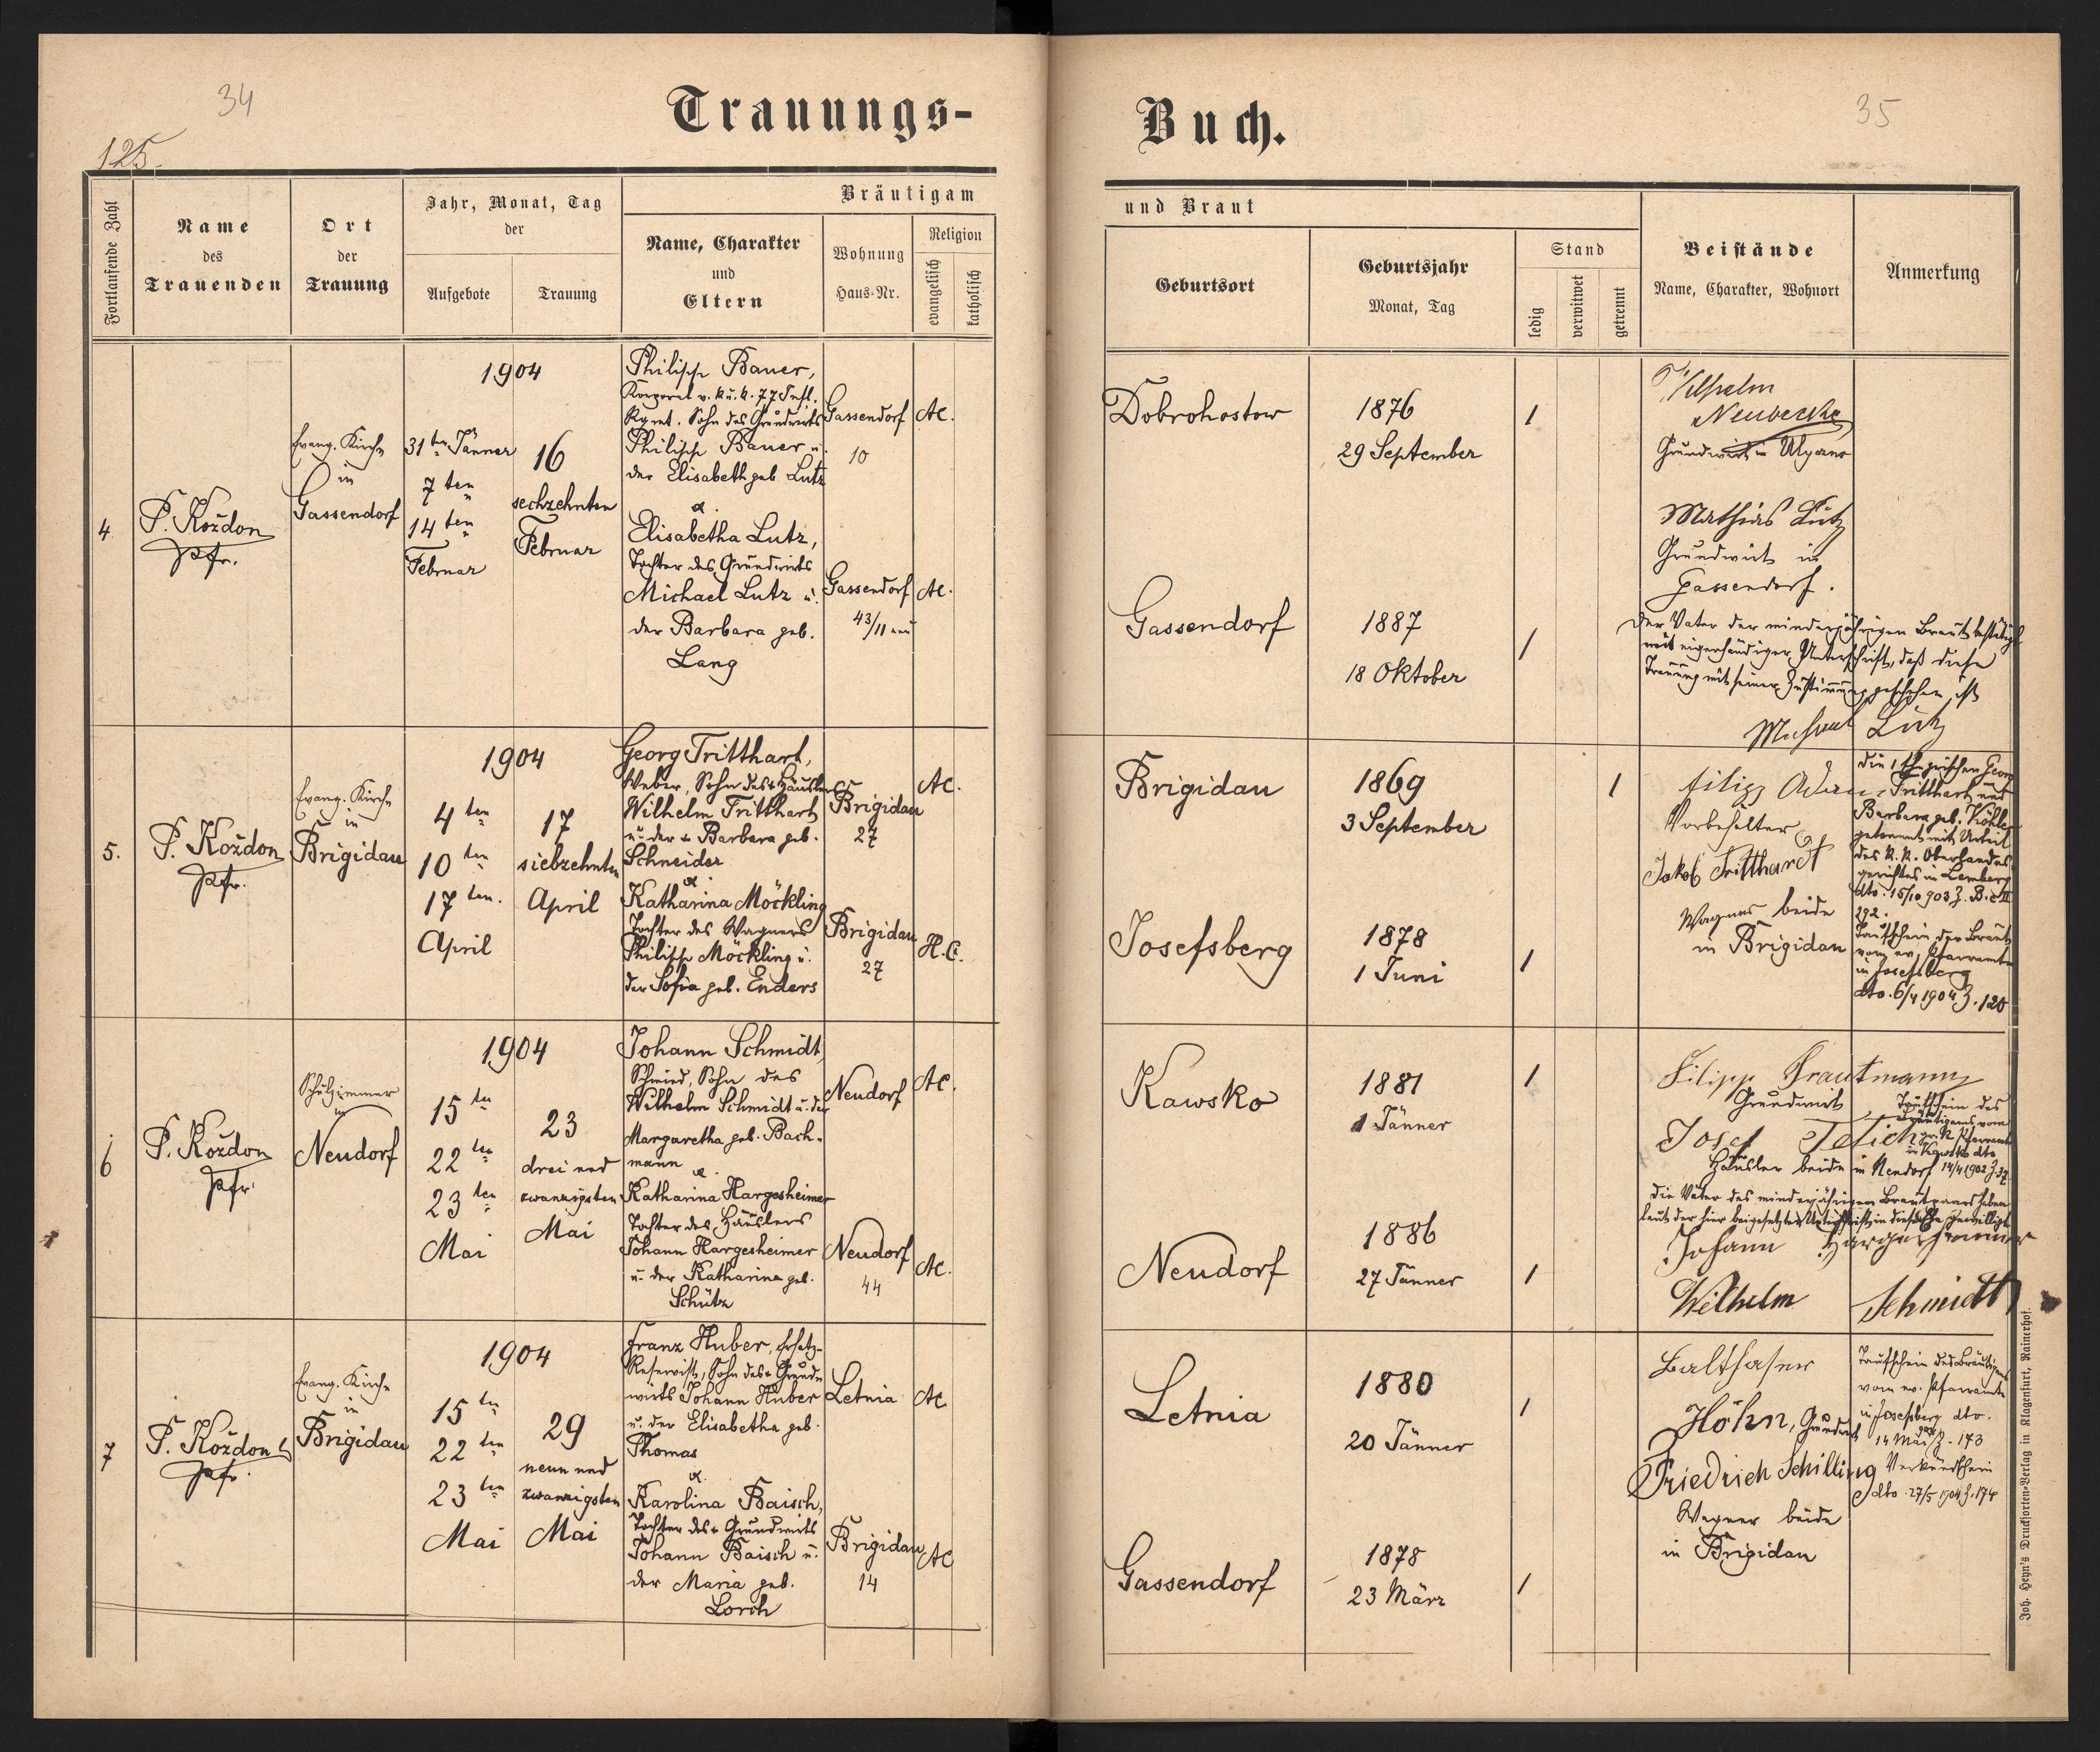 34
125.
Trauungs-
Fortlaufende Zahl
Name
des
Trauenden
Ort
der
Trauung
Jahr, Monat, Tag
der
Aufgebote
Trauung
Bräutigam
Name, Charakter
und
Eltern
Wohnung
Haus-Nr.
Religion
evangelisch
katholisch
4.
P. Kożdon
Pfr.
Evang. Kirche
in
Gassendorf
1904
31ten Jänner
7ten
14ten
Februar
16
sechzehnten
Februar
Philipp Bauer,
Korporal v. k.u.k. 77 Inft.
Rgmt. Sohn des Grundwirts
Philipp Bauer u.
der Elisabeth geb. Lutz
&.
Elisabetha Lutz,
Tochter des Grundwirts
Michael Lutz u.
der Barbara geb.
Lang
Gassendorf
10
Gassendorf
43/11 neu
AC.
AC.
5.
P. Kożdon
Pfr.
Evang. Kirche
in
Brigidau
1904
4ten
10ten
17ten.
April
17
siebzehnten
April
Georg Tritthart,
Weber, Sohn des + Häuslers
Wilhelm Tritthart
u. der + Barbara geb.
Schneider
&.
Katharina Möckling
Tochter des Wagners
Philipp Möckling u.
der Sofia geb. Enders
Brigidau
27
Brigidau
27
AC.
H.C.
6
P. Kożdon
Pfr.
Schulzimmer
in
Neudorf
1904
15ten
22ten
23ten
Mai
23
drei und
zwanzigsten
Mai
Johann Schmidt,
Schmied, Sohn des
Wilhelm Schmidt u. der
Margaretha geb. Bach-
mann
&.
Katharina Hargesheimer
Tochter des Häuslers
Johann Hargesheimer
u. der Katharina geb.
Schütz
Neudorf
Neudorf
44
AC.
AC.
7
P. Kożdon
Pfr.
Evang. Kirche
in
Brigidau
1904
15ten
22ten
23ten
Mai
29
neun und
zwanzigsten
Mai
Franz Huber, Ersatz-
Reservist, Sohn des + Grund-
wirts Johann Huber
u. der Elisabetha geb.
Thomas
&.
Karolina Baisch,
Tochter des + Grundwirts
Johann Baisch u.
der Maria geb.
Lorch
Letnia
Brigidau
14
AC.
AC
35
Buch.
und Braut
Geburtsort
Geburtsjahr
Monat, Tag
Stand
ledig
verwitwet
getrennt
Beistände
Name, Charakter, Wohnort
Anmerkung
Dobrohostow
1876
29 September
1
Wilhelm
Grundwirt in
Mathias Lutz
Grundwirt in
Gassendorf.
Gassendorf
1887
18 Oktober
1
Der Vater der minderjährigen Braut bestätigt
mit eigenhändiger Unterschrift, daß diese
Trauung mit seiner Zustimmung geschehen ist
Michael Lutz
Brigidau
1869
3 September
1
Filipp Adam
Vorbehalter
Jakob Tritthardt
Wagner beide
in Brigidau
Josefsberg
1878
1 Juni
1
Die Ehe zwischen Georg
Tritthart und
Barbara geb. Köhler
getrennt mit Urteil
des k.k. Oberlandes
gerichtes in Lemberg
dto. 15/10 903 Z. B. c II
292.
Taufschein der Braut
vom ev. Pfarramte
in Josefsberg
dto. 6/4 1904 Z. 120
Kawsko
1881
1 Jänner
1
Filipp Trautmann
Grundwirt
Josef
Häusler beide in Neudorf
Taufschein des
Bräutigams vom
Pfarramte
in Kawsko dto
14/4 1902 Z 37
Neudorf
1886
27 Jänner
1
Die Väter des minderjährigen Brautpaars haben
laut der hier beigesetzten Unterschrift in diese Ehe gewilligt
Johann Hargesheimer
Wilhelm Schmidt
Letnia
1880
20 Jänner
1
Balthaser
Höhn, Grundwirt
Friedrich Schilling
Wagner beide
in Brigidau
Taufschein des Bräutigams
vom ev. Pfarramte
in Josefsberg dto.
14 Mai Z. 173
Verkündschein
dto. 27/5 1904 Z. 174
Gassendorf
1878
23 März
1
Joh. Heyn's Drucksorten-Verlag in Klagenfurt, Rainerhof.